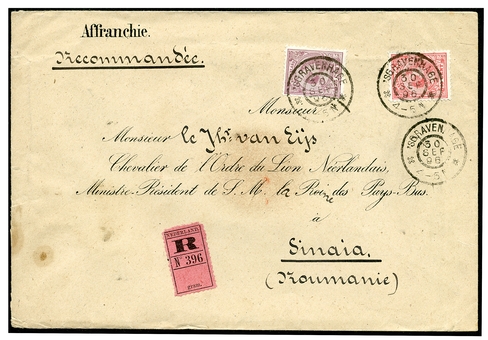 Affranchie.
Recommandée.
'SGRAVENHAGE
30
SEP
96
4-5N
'SGRAVENHAGE
30
SEP
96
4-5N
'SGRAVENHAGE
30
SEP
96
4-5N
Monsieur
Monsieur le Jhr van Eijs
Chevalier de l'Ordre du Lion Néerlandais,
Ministre-Président de S. M. la Reine des Pays-Bas.
à
Sinaia.
(Roumanie)
NEDERLAND
R
N 396